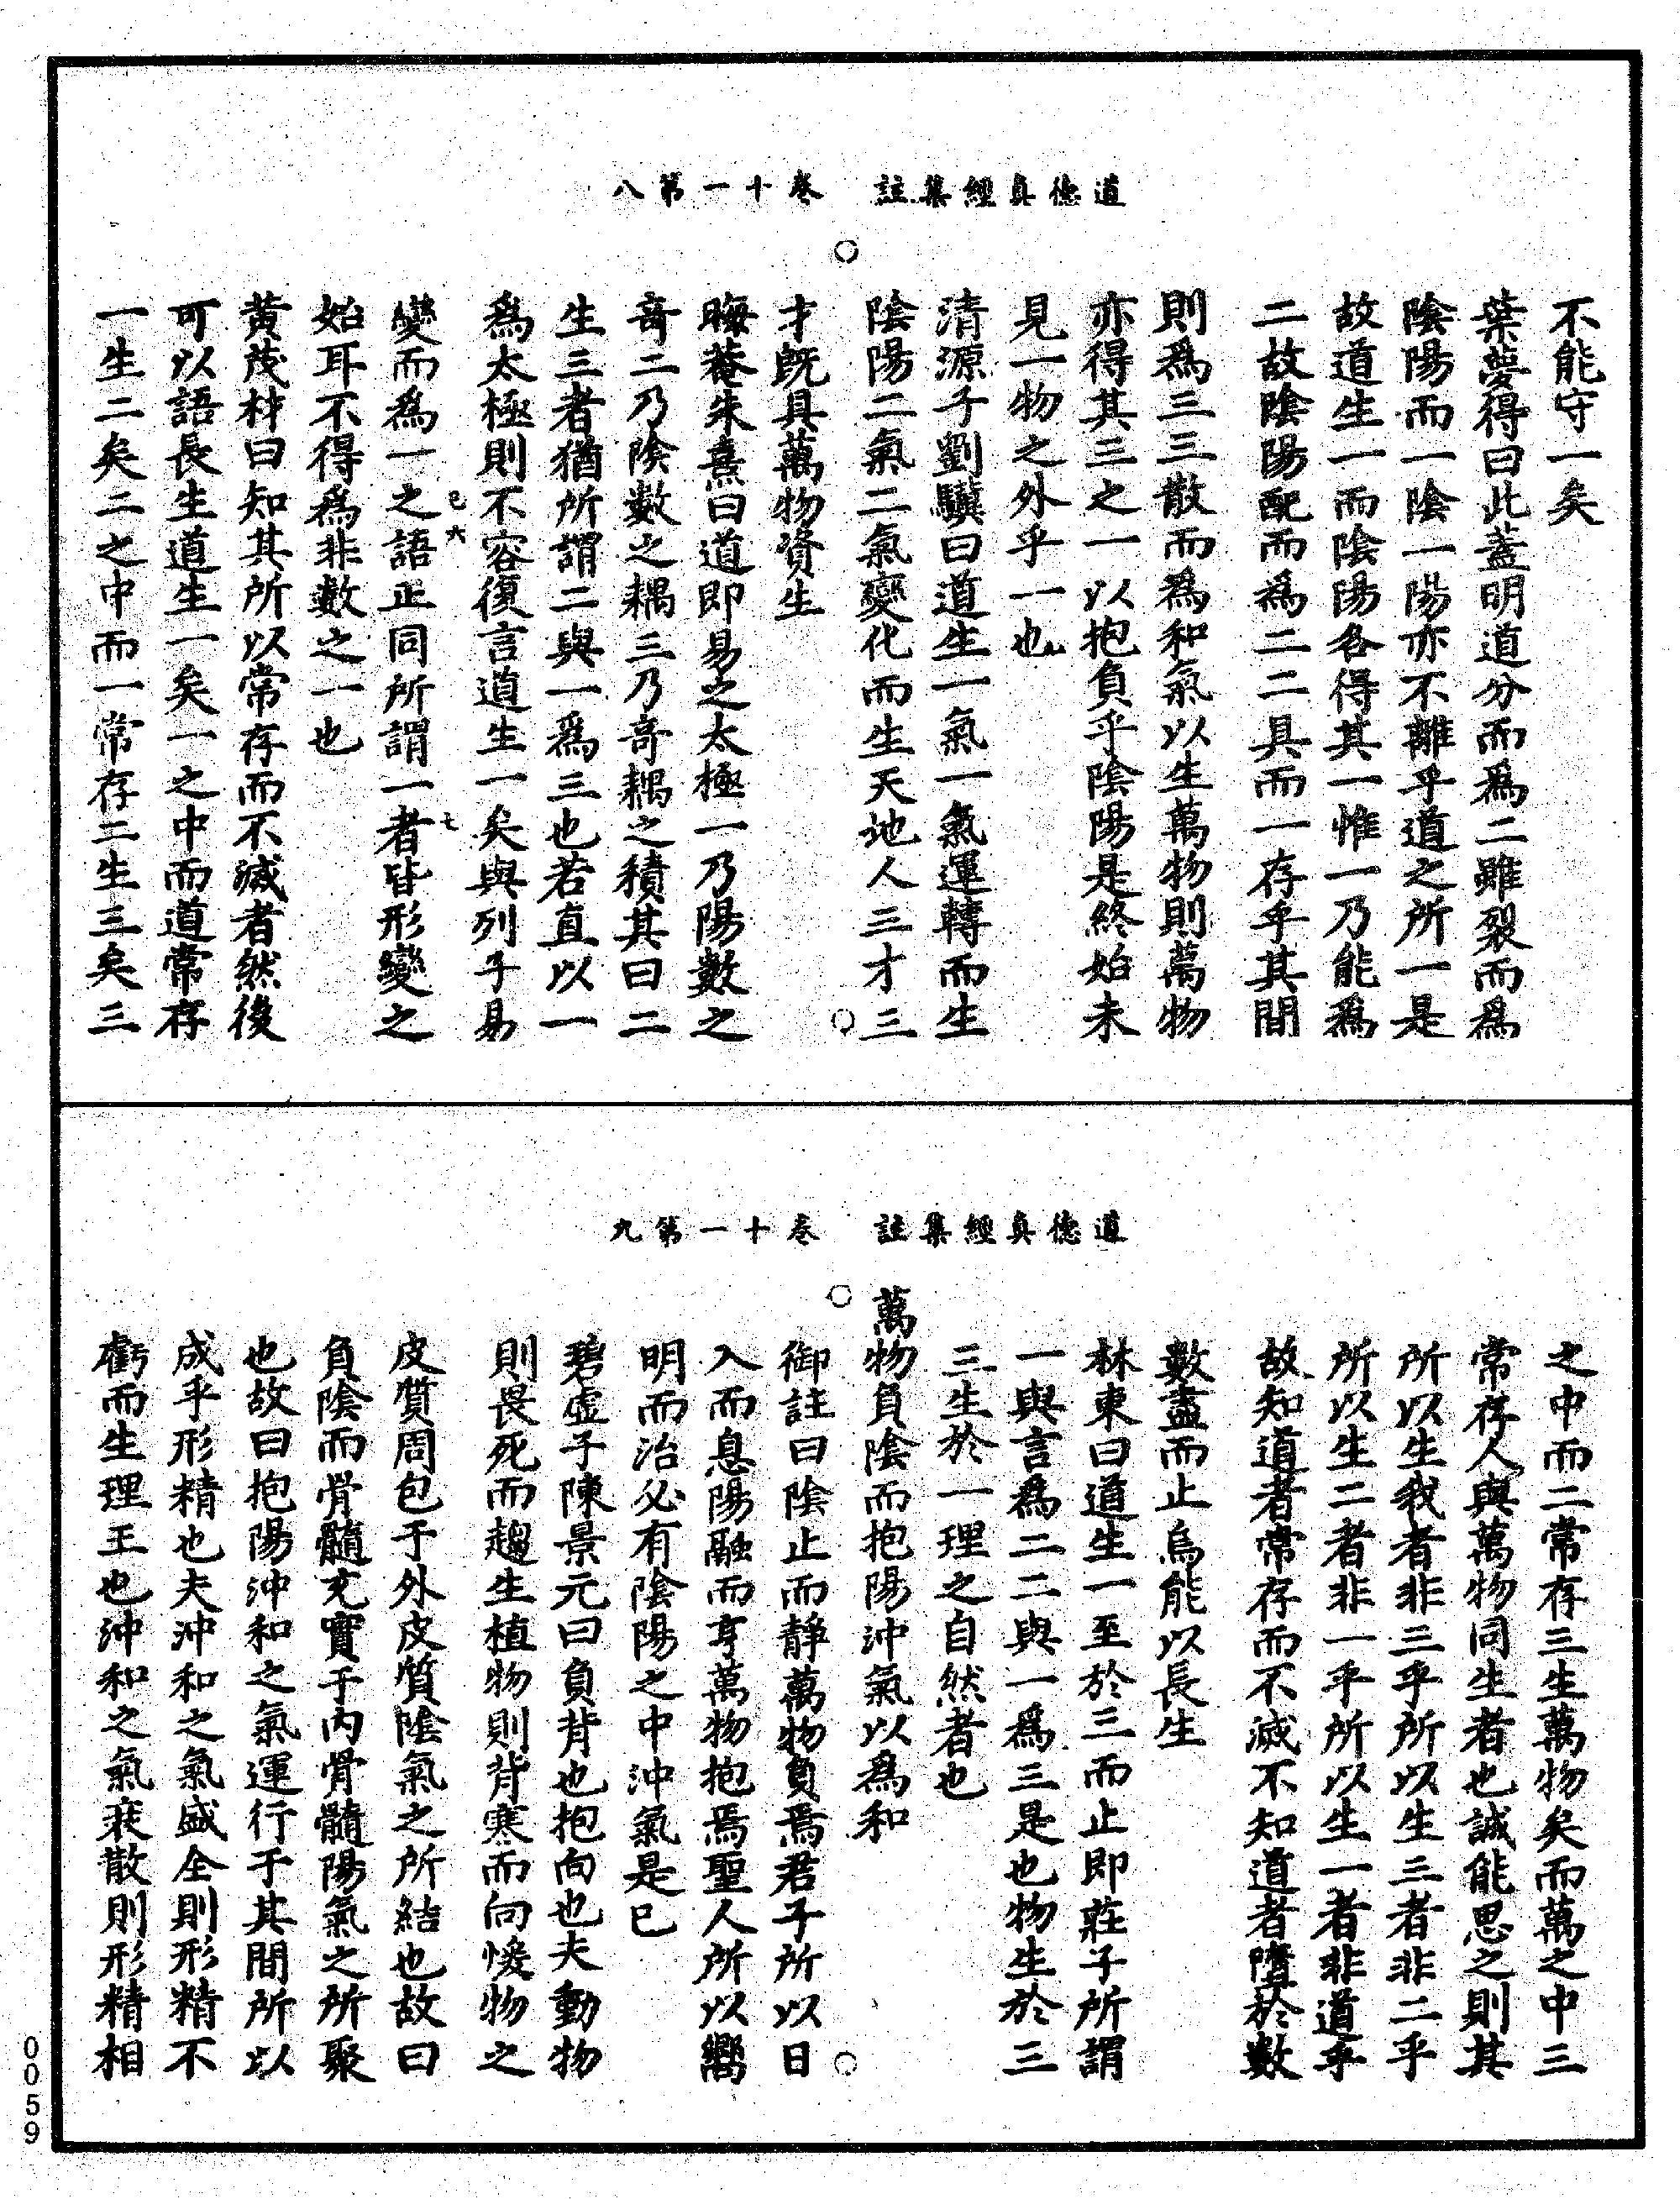 道德真經集註　卷十一第八
不能守一矣
葉夢得曰此蓋明道分而爲二雖裂而爲
陰陽而一陰一陽亦不離乎道之所一是
故道生一而陰陽各得其一惟一乃能爲
二故陰陽配而爲二二具而一存乎其間
則爲三三散而爲和氣以生萬物則萬物
亦得其三之一以抱負乎陰陽是終始未
見一物之外乎一也
清源子劉驥曰道生一氣一氣運轉而生
陰陽二氣二氣變化而生天地人三才三
才既具萬物資生
晦菴朱熹曰道即易之太極一乃陽數之
奇二乃陰數之耦三乃奇耦之積其曰二
生三者猶所謂二與一爲三也若直以一
爲太極則不容復言道生一矣與列子易
變而爲一之語正同所謂一者皆形變之
已六
七
始耳不得爲非數之一也
黃茂材曰知其所以常存而不滅者然後
可以語長生道生一矣一之中而道常存
一生二矣二之中而一常存二生三矣三
道德真經集註　卷十一第九
之中而二常存三生萬物矣而萬之中三
常存人與萬物同生者也誠能思之則其
所以生我者非三乎所以生三者非二乎
所以生二者非一乎所以生一者非道乎
故知道者常存而不滅不知道者墮於數
數盡而止烏能以長生
林東曰道生一至於三而止即莊子所謂
一與言爲二二與一爲三是也物生於三
三生於一理之自然者也
萬物負陰而抱陽沖氣以爲和
御註曰陰止而靜萬物負焉君子所以日
入而息陽融而亨萬物抱焉聖人所以嚮
明而治必有陰陽之中沖氣是已
碧虛子陳景元曰負背也抱向也夫動物
則畏死而趨生植物則背寒而向煖物之
皮質周包于外皮質陰氣之所結也故曰
負陰而骨髓充實于內骨髓陽氣之所聚
也故曰抱陽沖和之氣運行于其間所以
成乎形精也夫沖和之氣盛全則形精不
虧而生理王也沖和之氣衰散則形精相
0059